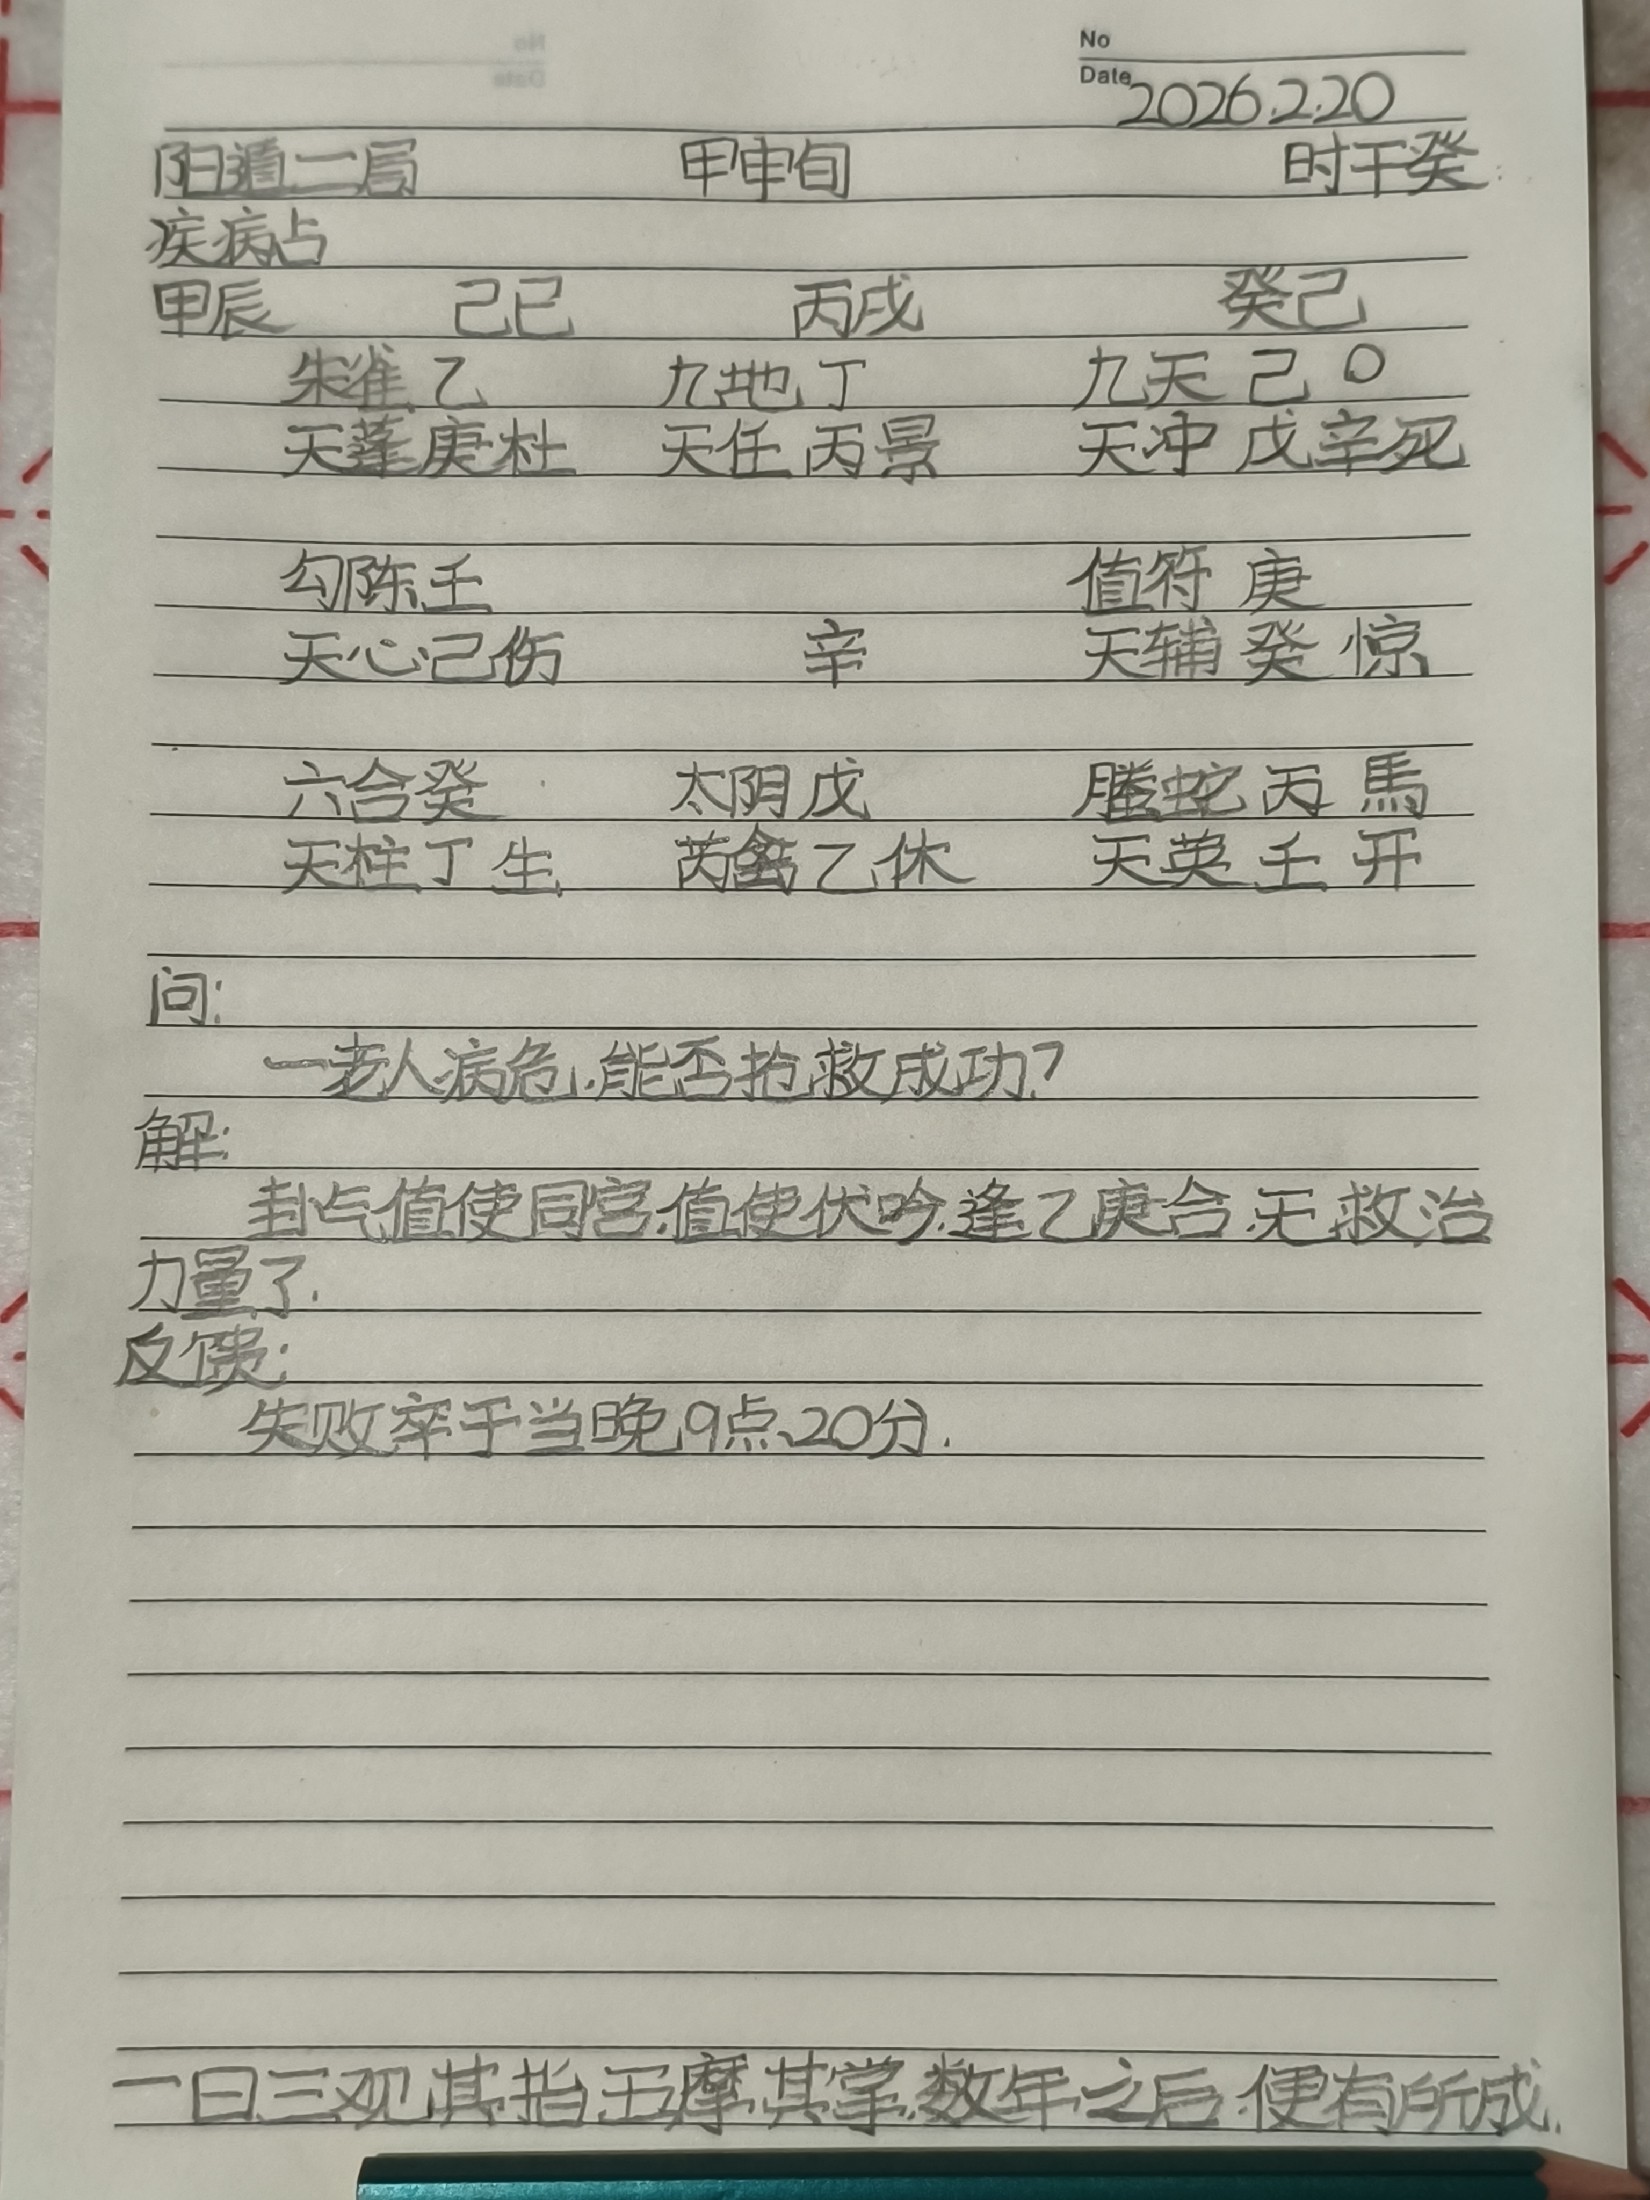 No
Date 2026.2.20
阳遁二局 甲申旬 时干癸
疾病占
甲辰 己巳 丙戌 癸己
朱雀 乙 九地 丁 九天 己 O
天蓬 庚 杜 天任 丙 景 天冲 戊辛死
勾陈 壬 值符 庚
天心 己 伤 辛 天辅 癸 惊
六合 癸 太阴 戊 螣蛇 丙 馬
天柱 丁 生 芮禽 乙 休 天英 壬 开
问:
一老人病危,能否抢救成功?
解:
卦占值使同宫,值使伏吟,逢乙庚合,无救治
力量了.
反馈:
失败卒于当晚9点20分.
一日三观其指五摩其掌,数年之后,便有所成.